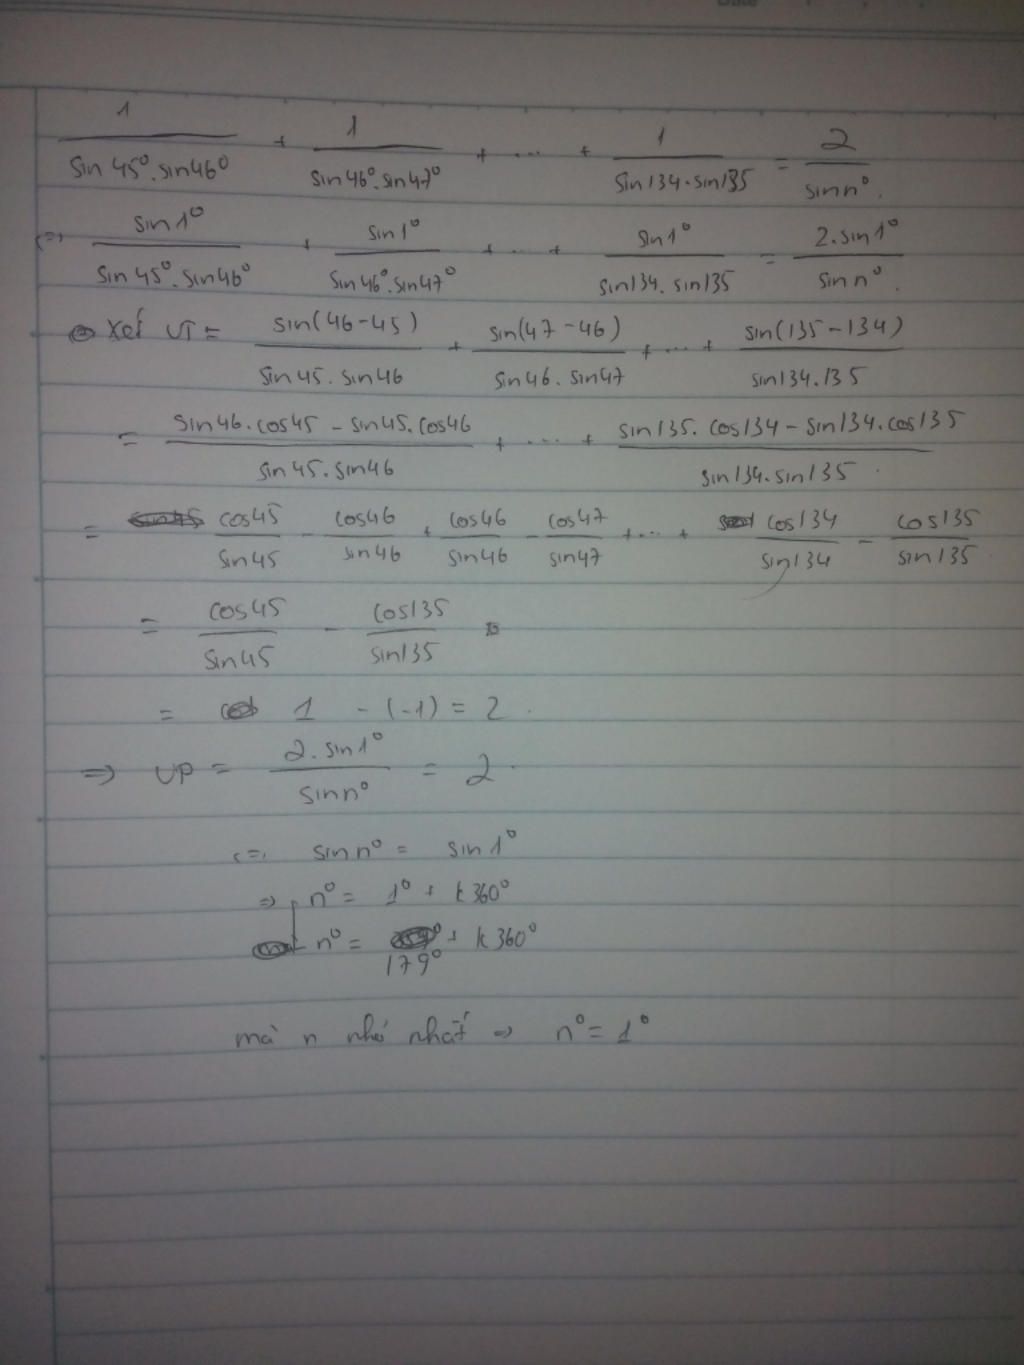 1/(sin 45°.sin46°) + 1/(sin46°.sin47°) + ... + 1/(sin134.sin135) = 2/(sin n°).
<=> sin1°/(sin45°.sin46°) + sin1°/(sin46°.sin47°) + ... + sin1°/(sin134.sin135) = 2.sin1°/(sin n°).
Xét VT = sin(46-45)/(sin45.sin46) + sin(47-46)/(sin46.sin47) + ... + sin(135-134)/(sin134.135)
= (sin46.cos45 - sin45.cos46)/(sin45.sin46) + ... + (sin135.cos134 - sin134.cos135)/(sin134.sin135).
= cos45/sin45 - cos46/sin46 + cos46/sin46 - cos47/sin47 + ... + cos134/sin134 - cos135/sin135
= cos45/sin45 - cos135/sin135
= 1 - (-1) = 2.
=> VP = 2.sin1°/(sin n°) = 2.
<=> sin n° = sin1°
=> n° = 1° + k360°
n° = 179° + k360°
mà n nhỏ nhất => n° = 1°